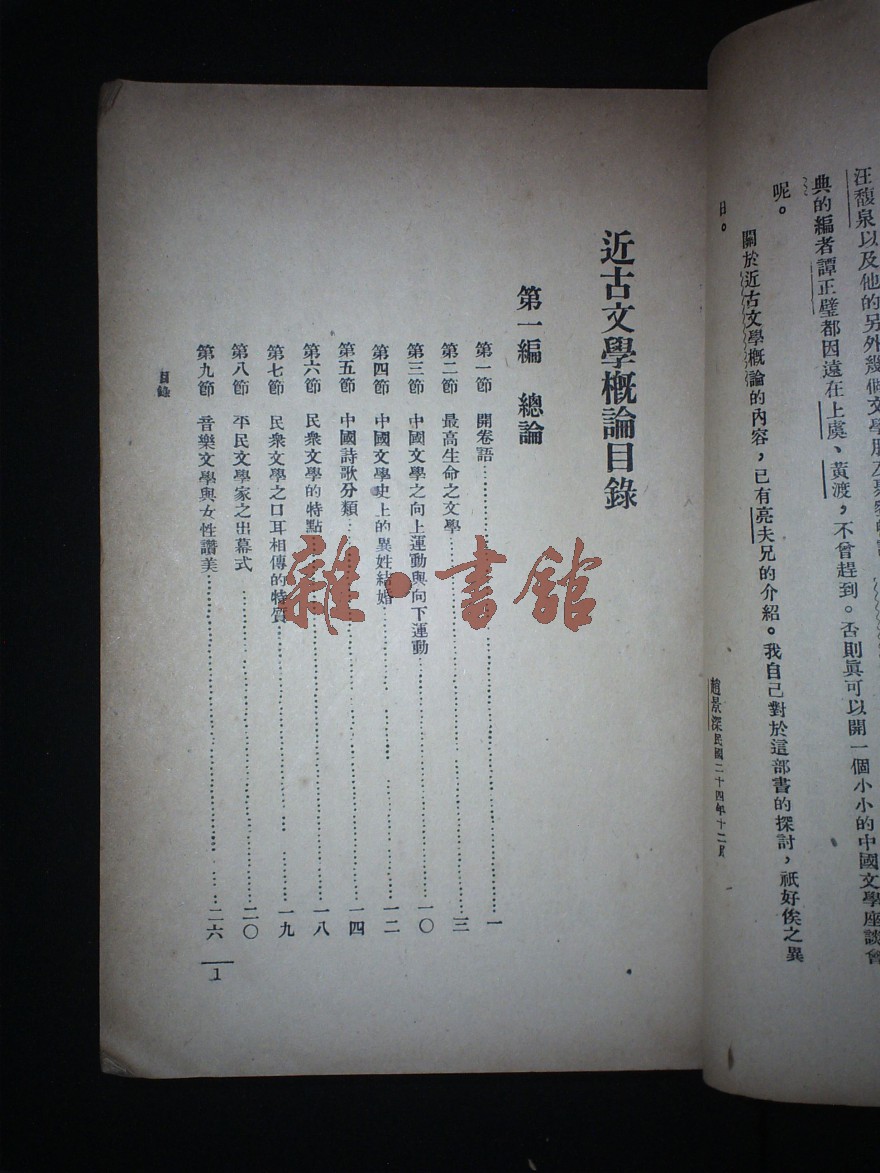 汪馥泉以及他的另外幾個文學
典的編者譚正璧都因遠在上虞、黃渡，不曾趕到。否則眞可以開一個小小的中國文學座談會
呢。
關於近古文學概論的內容，已有亮夫兄的介紹。我自己對於這部書的探討，祇好俟之異
日。
趙景深民國二十四年十二月
近古文學概論目錄
第一編　總論
第一節　開卷語…………一
第二節　最高生命之文學…………三
第三節　中國文學之向上運動與向下運動…………一〇
第四節　中國文學史上的異姓結婚…………一二
第五節　中國詩歌分類…………一四
第六節　民衆文學的特點…………一八
第七節　民衆文學之口耳相傳的特質…………一九
第八節　平民文學家之出幕式…………二〇
第九節　音樂文學與女性讚美…………二六
目錄
1
雜·書館